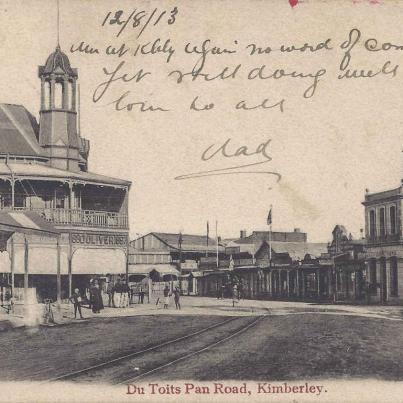 12/8/13
Am at Kbly again no word of Com
Yet still doing well
love to all
dad
OLIVER
Du Toits Pan Road, Kimberley.